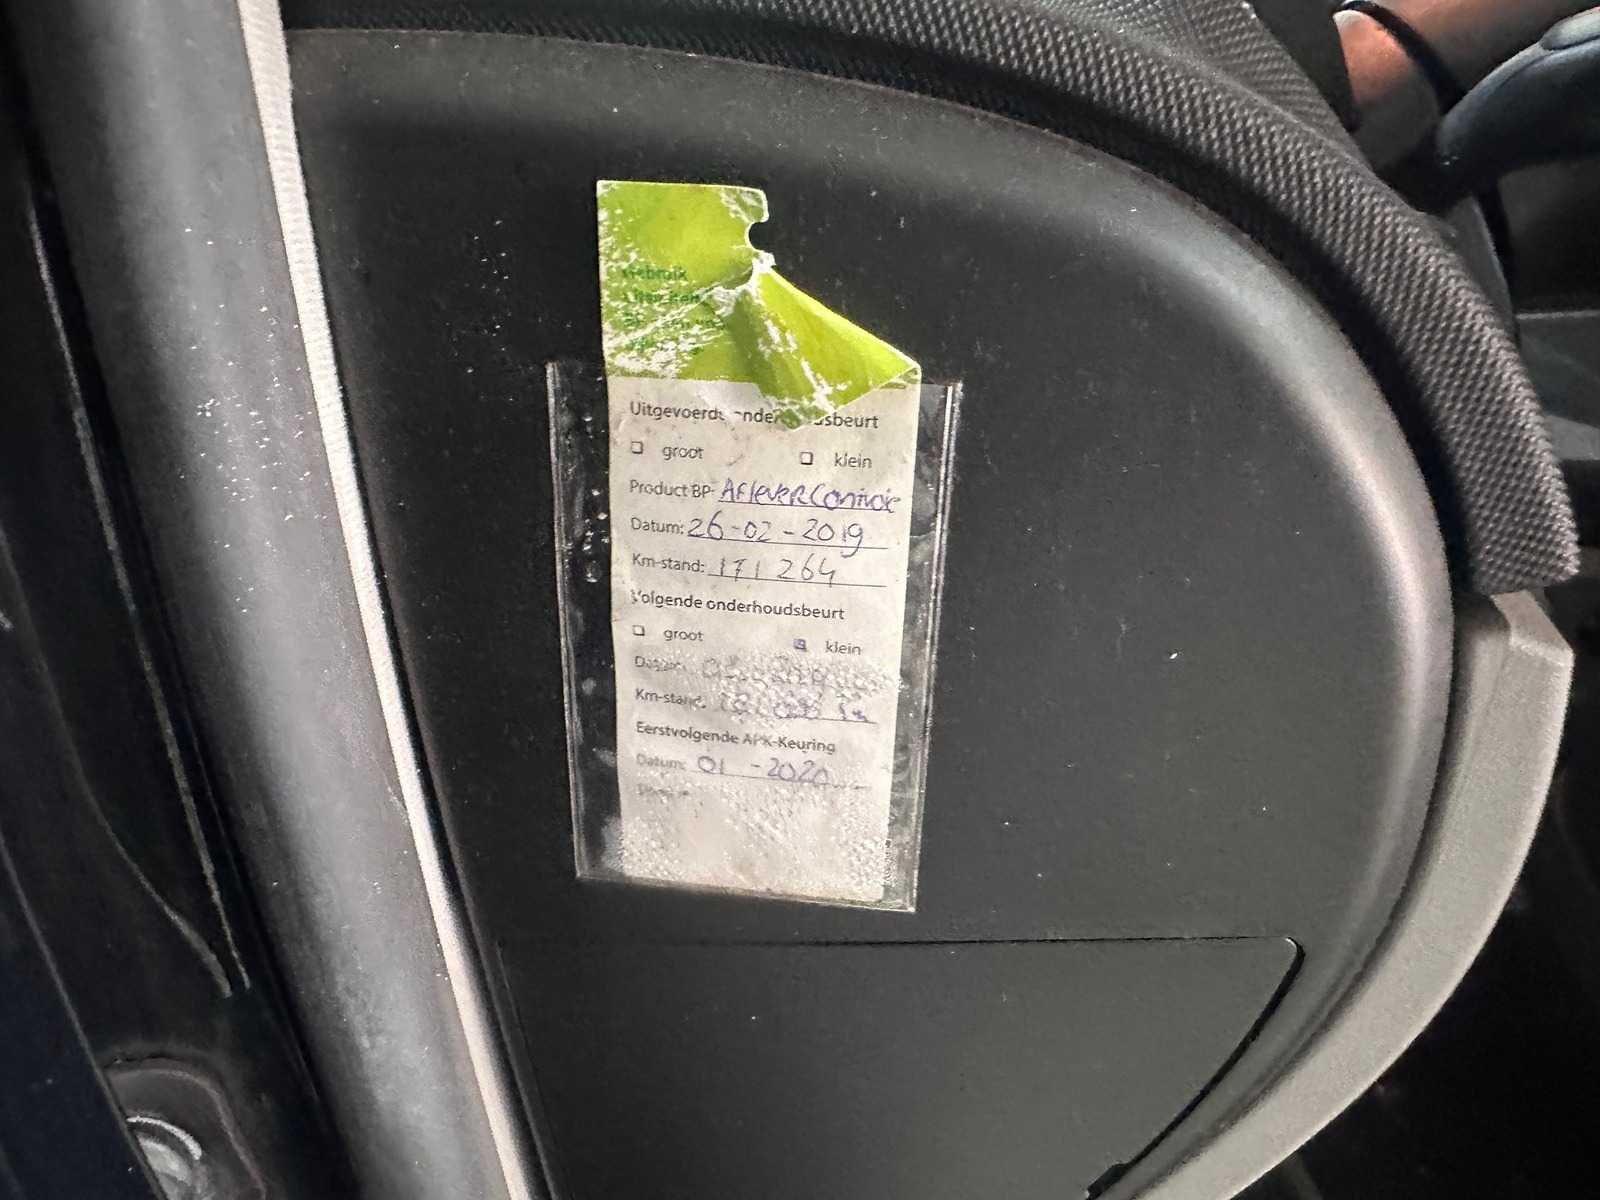 Uitgevoerde onderhoudsbeurt
groot klein
Product BP: AfleverControle
Datum: 26-02-2019
Km-stand: 171 264
Volgende onderhoudsbeurt
groot klein
Km-stand:
Eerstvolgende APK-Keuring
Datum: 01 - 2020